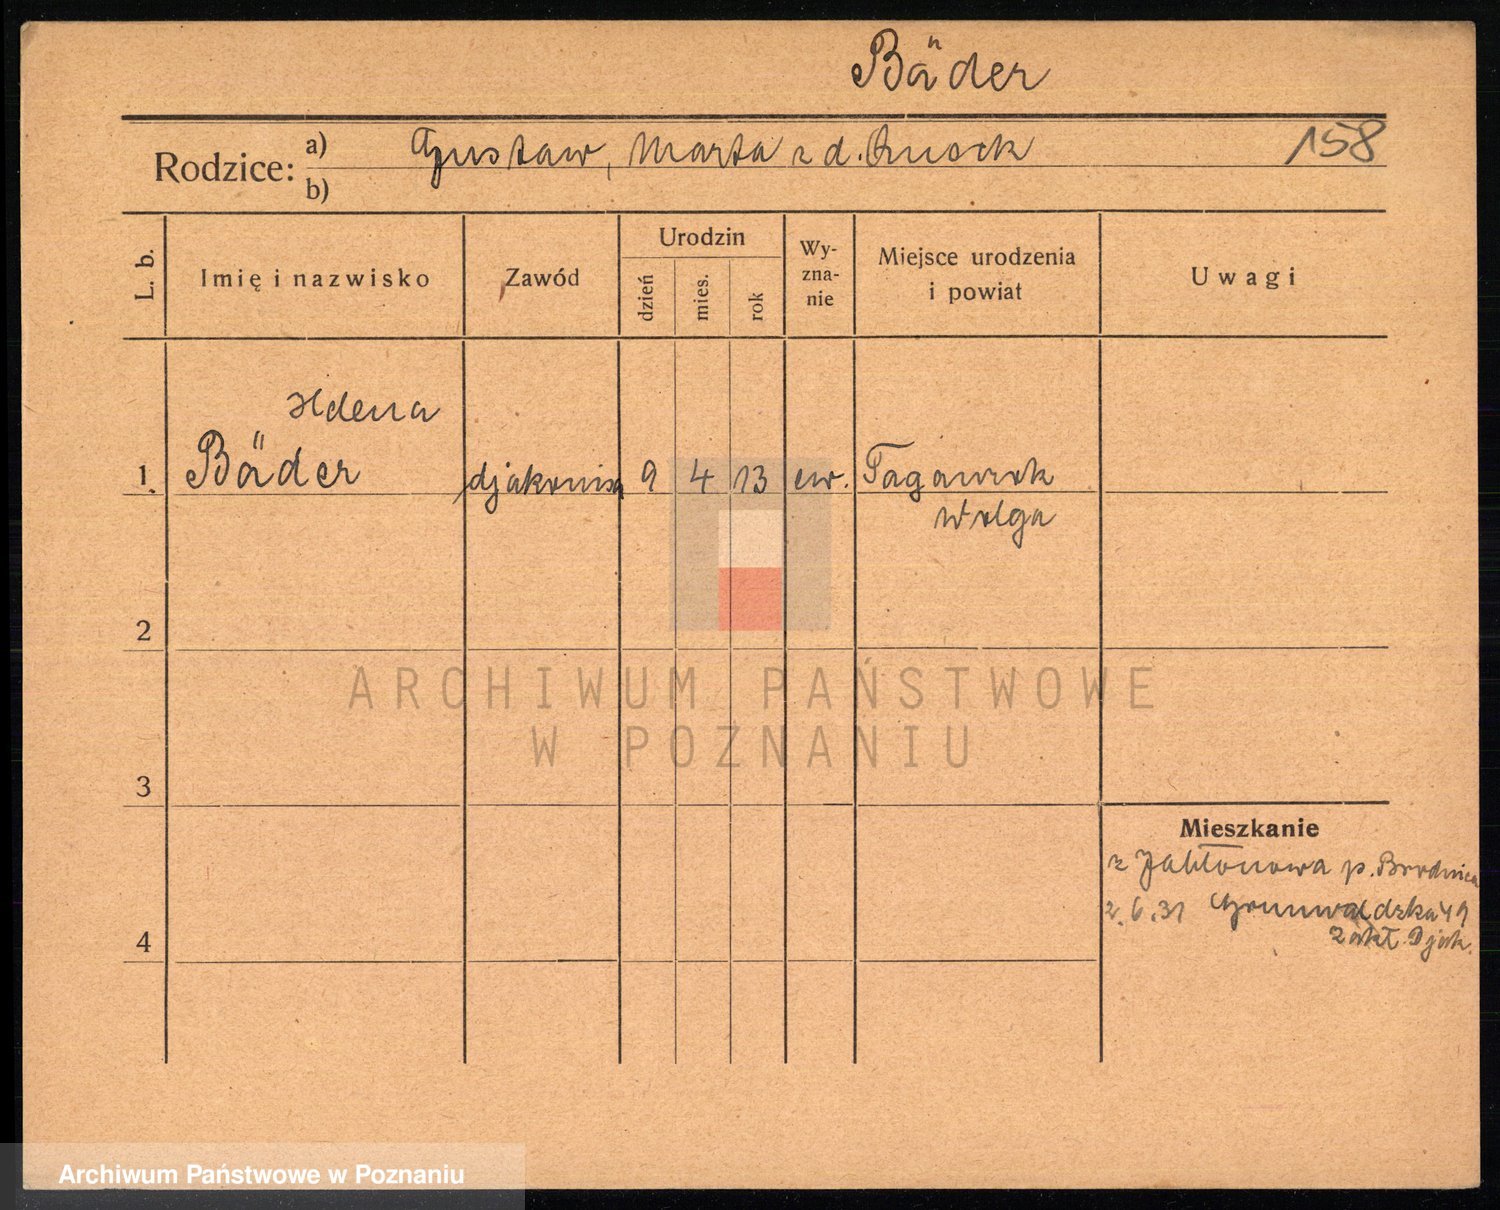 Bäder
Rodzice: a) Gustaw, Marta z d.
158
b)
L. b.
Imię i nazwisko
Zawód
Urodzin
dzień
mies.
rok
Wy-
zna-
nie
Miejsce urodzenia
i powiat
Uwagi
Helena
1. Bäder djakonisa 9 4 13 ew.
Wolga
2
ARCHIWUM PAŃSTWOWE
W POZNANIU
3
Mieszkanie
z Jabłonowa p. Brodnica
2.6.31 Grunwaldzka 49
Zakł. Djak.
4
Archiwum Państwowe w Poznaniu